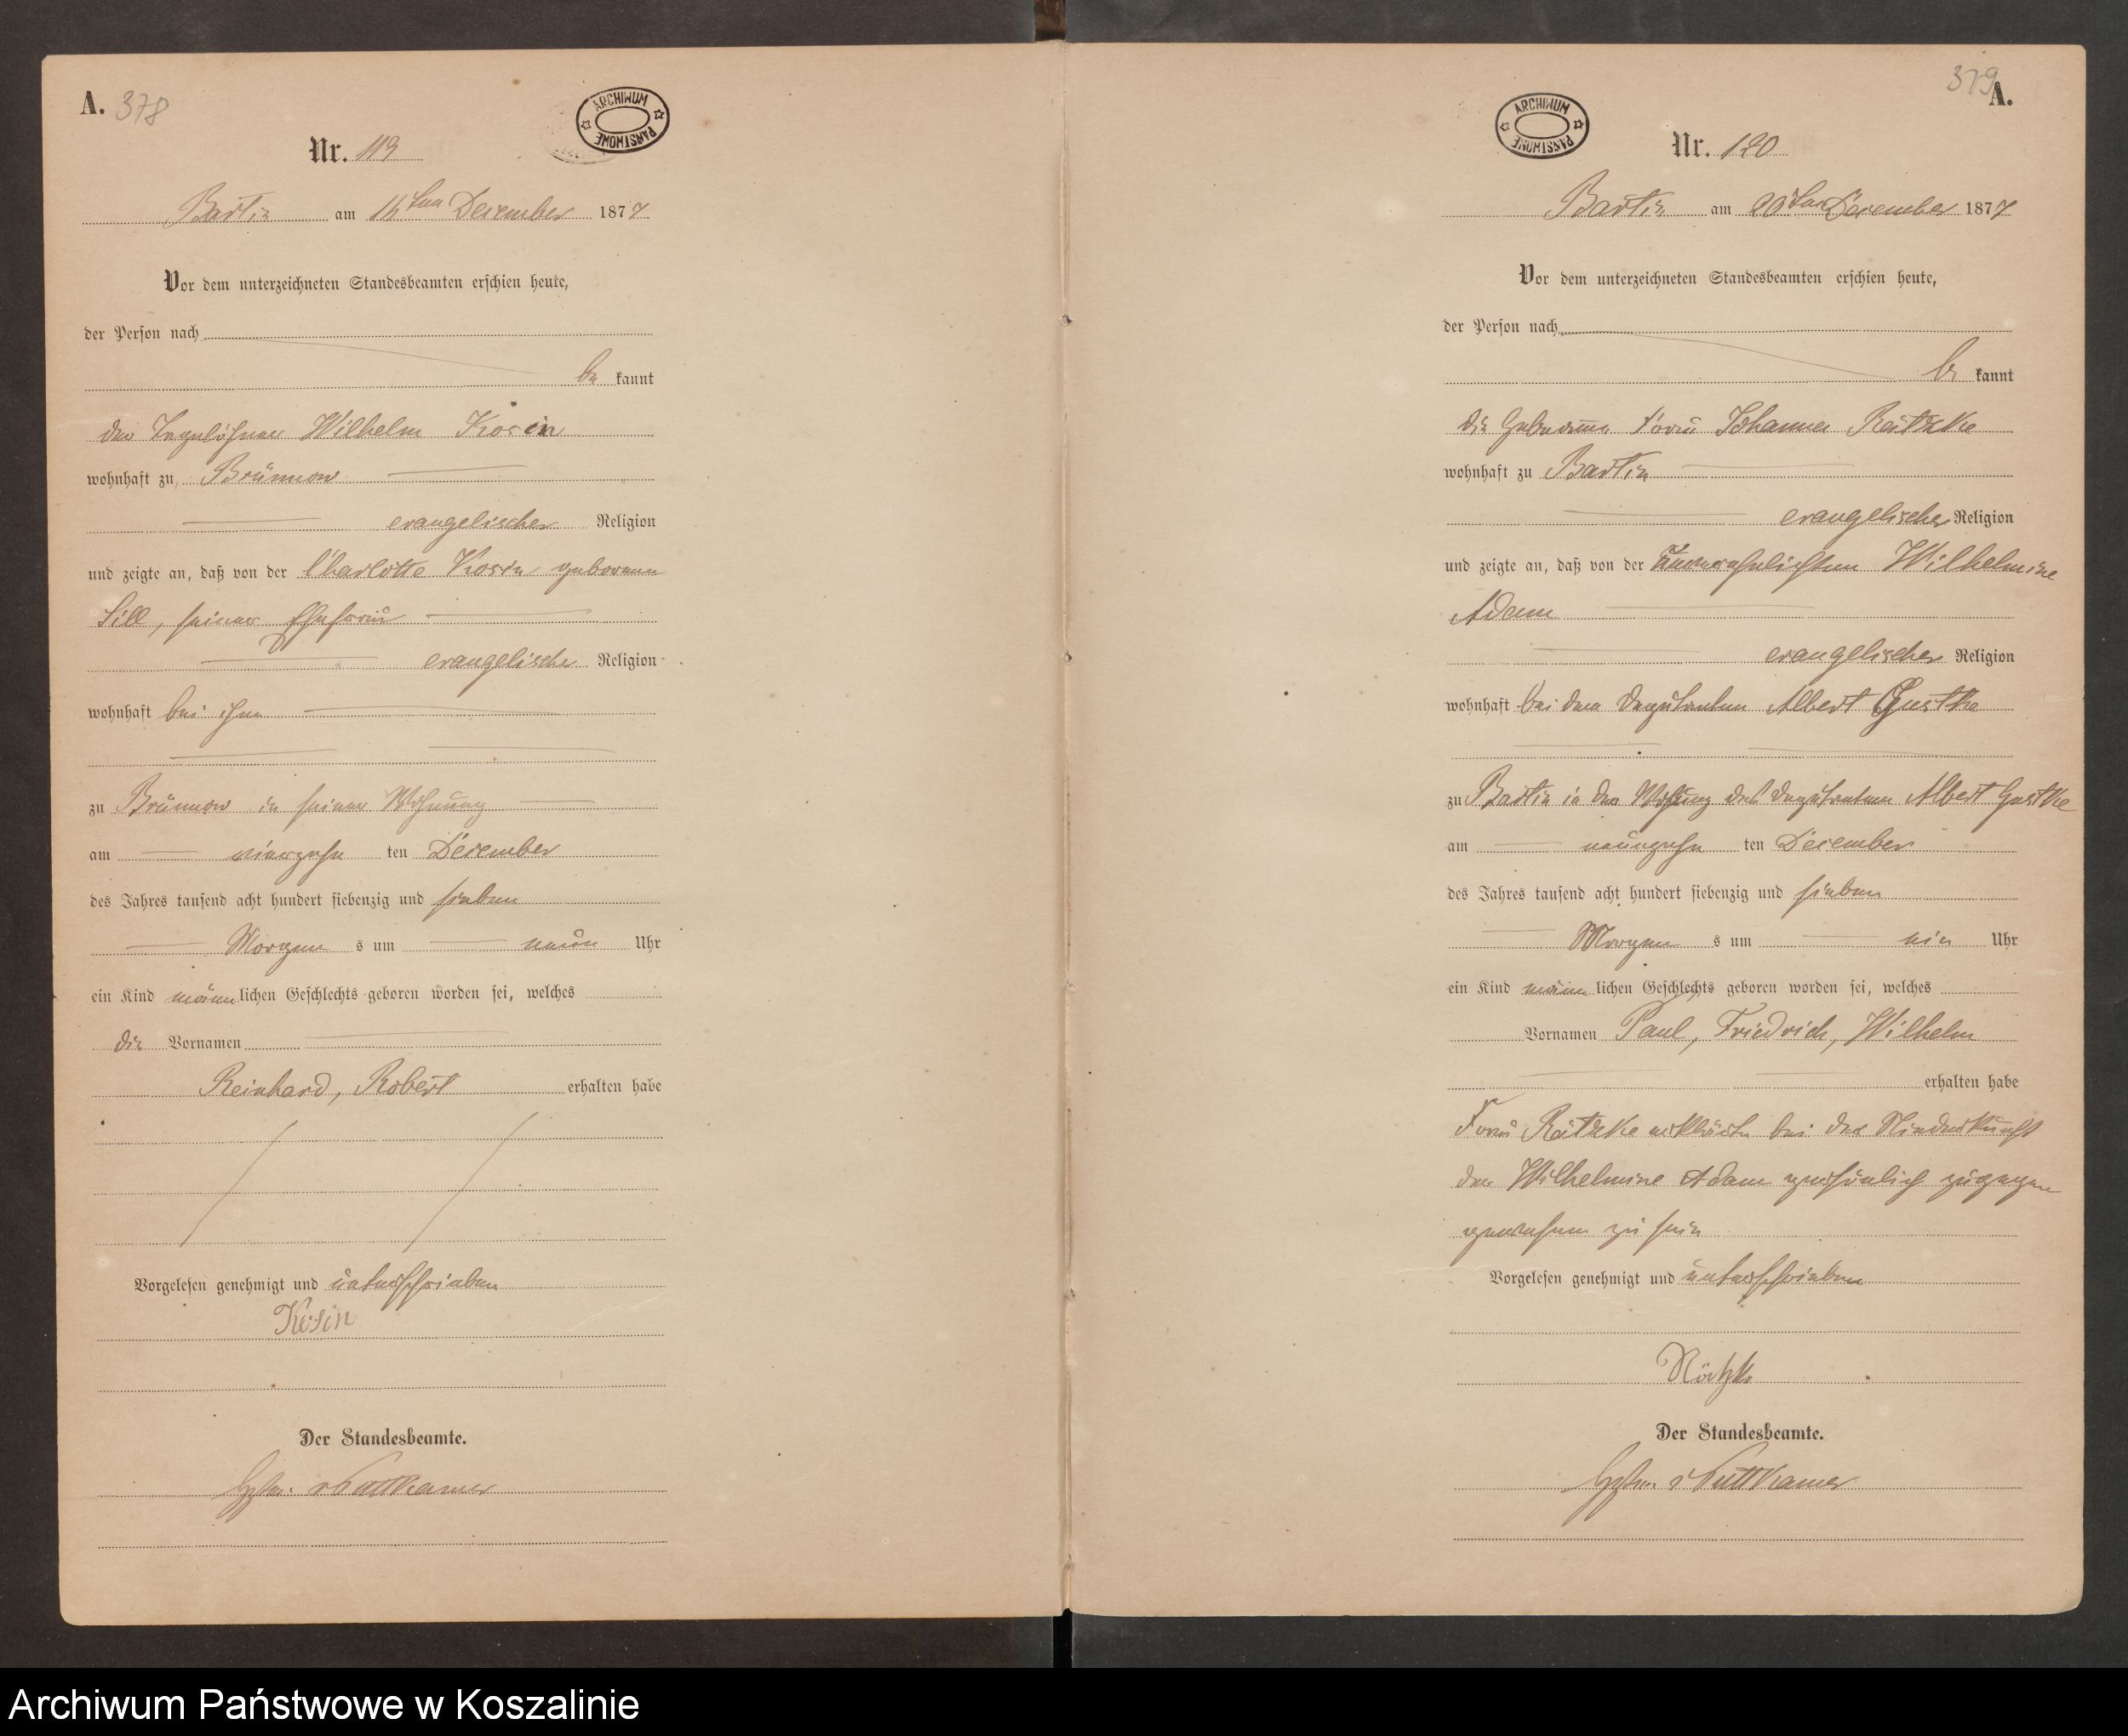 A. 378
ARCHIWUM PAŃSTWOWE
Nr. 119
Bartin am 14ten December 1877
Vor dem unterzeichneten Standesbeamten erschien heute,
der Person nach
be kannt
der Tagelöhner Wilhelm Kosin
wohnhaft zu Brünnow
evangelischer Religion
und zeigte an, daß von der Charlotte Kosin geborenen
Sill, seiner Ehefrau
evangelischer Religion
wohnhaft bei ihm
zu Brünnow in seiner Wohnung
am vierzehn ten December
des Jahres tausend acht hundert siebenzig und sieben
Morgen s um neun Uhr
ein Kind männ lichen Geschlechts geboren worden sei, welches
die Vornamen
Reinhard, Robert erhalten habe
Vorgelesen genehmigt und unterschrieben
Kosin
Der Standesbeamte.
v Puttkamer
379 A.
ARCHIWUM PAŃSTWOWE
Nr. 120
Bartin am 20ten December 1877
Vor dem unterzeichneten Standesbeamten erschien heute,
der Person nach
be kannt
die Hebamme Frau Johanna Rätzke
wohnhaft zu Bartin
evangelischer Religion
und zeigte an, daß von der unverehelichten Wilhelmine
Adam
evangelischer Religion
wohnhaft bei dem Deputanten Albert Gustke
zu Bartin in der Wohnung des Deputanten Albert Gustke
am neunzehn ten December
des Jahres tausend acht hundert siebenzig und sieben
Morgen s um ein Uhr
ein Kind männ lichen Geschlechts geboren worden sei, welches
Vornamen Paul, Friedrich, Wilhelm
erhalten habe
Frau Rätzke erklärte bei der Niederkunft
der Wilhelmine Adam persönlich zugegen
gewesen zu sein
Vorgelesen genehmigt und unterschrieben
Rätzke
Der Standesbeamte.
v Puttkamer
Archiwum Państwowe w Koszalinie